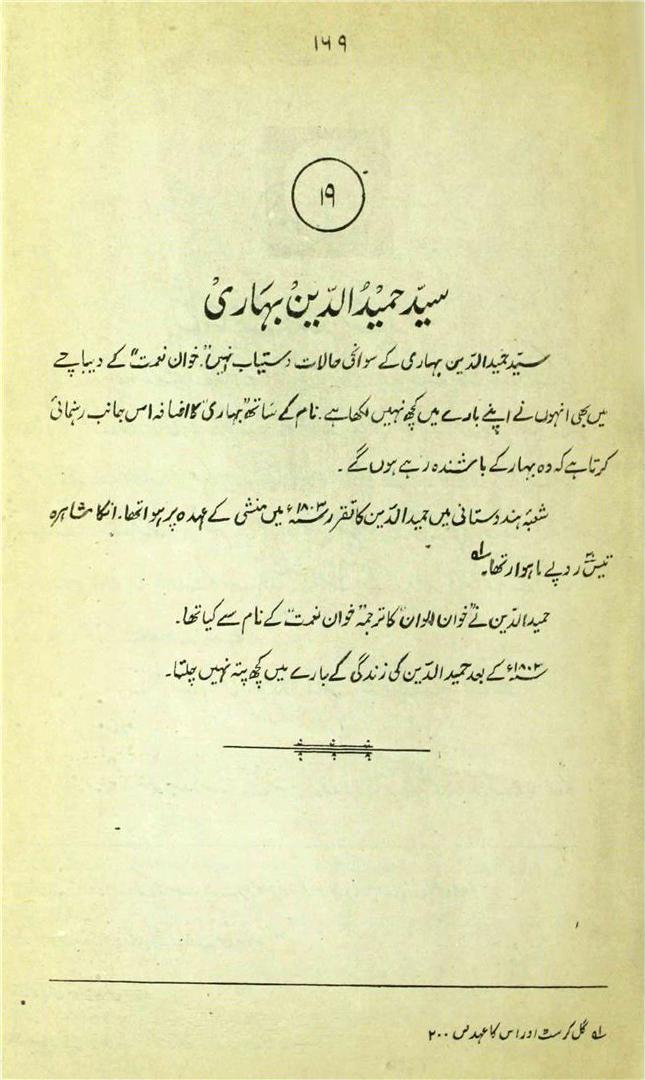 ۱۶۹
۱۹
سیّد حمیدُ الدّین بہاری
سیّد حمید الدّین بہاری کے سوانحی حالات دستیاب نہیں۔ "خوان نعمت" کے دیباچے
میں بھی انہوں نے اپنے بارے میں کچھ نہیں لکھا ہے۔ نام کے ساتھ "بہاری" کا اضافہ اس جانب رہنمائی
کرتا ہے کہ وہ بہار کے باشندہ رہے ہوں گے۔
شعبۂ ہندوستانی میں حمید الدّین کا تقرر ۱۸۰۳ء میں منشی کے عہدہ پر ہوا تھا۔ انکا مشاہرہ
تیس۳۰ روپے ماہوار تھا۔ ؎۱
حمید الدّین نے "خوان الوان" کا ترجمہ "خوان نعمت" کے نام سے کیا تھا۔
۱۸۰۳ء کے بعد حمید الدّین کی زندگی کے بارے میں کچھ پتہ نہیں چلتا۔
؎۱ گل کرسٹ اور اس کا عہد ص ۲۰۰